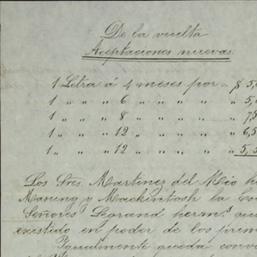 De la vuelta
Aceptaciones nuevas.
1 Letra á 4 meses por $ 5,
1 „ „ 6 „ „ „ „ 5,
1 „ „ 8 „ „ „ „ 7,5
1 „ „ 12 „ „ „ „ 6,5
1 „ „ 12 „ „ „ „ 5,5
Los Sres. Martinez del Rio h
Maning y Mackintosh la
Señores Legrand herms.
existido en poder de los
Igualmente quedó